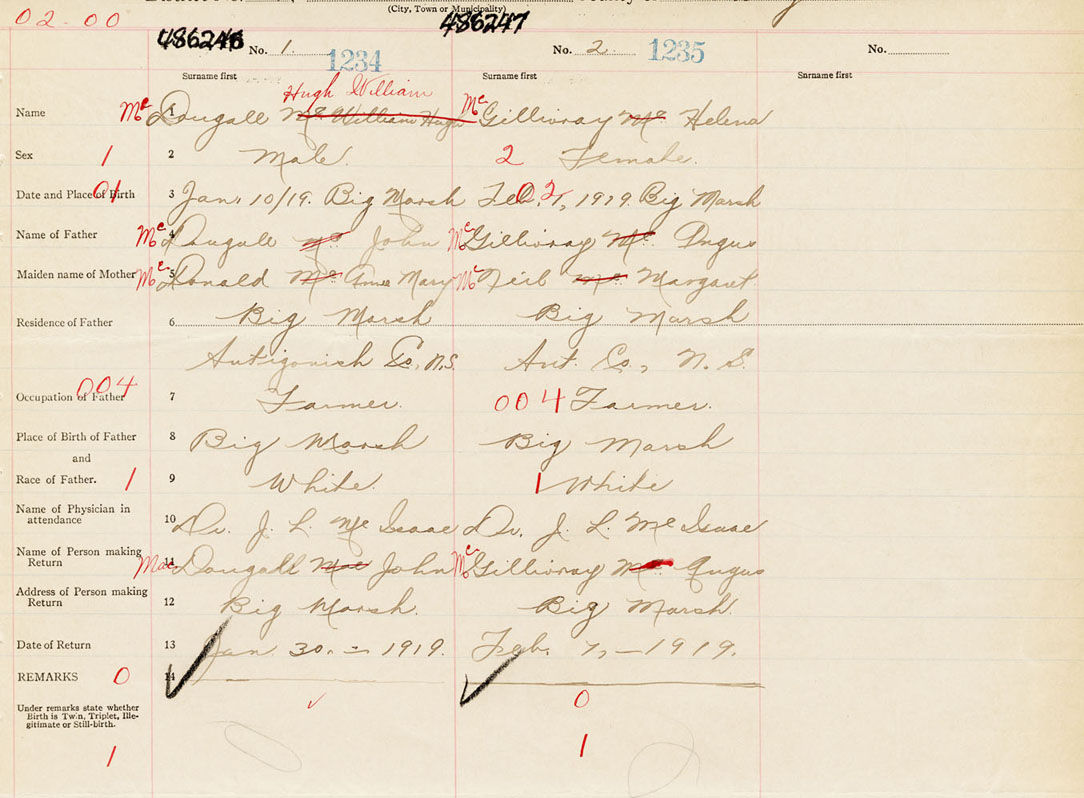 (City, Town or Municipality)
02-00
486246 No. 1 1234 486247 No. 2 1235 No.
Surname first Surname first Surname first
Hugh William
Name Mc 1 Dougall Mc William Hugh Mc Gillivray Mc Helena
Sex 1 2 Male. 2 Female.
Date and Place of Birth 01 3 Jan. 10/19. Big Marsh Feb. 1, 1919 Big Marsh 02
Name of Father Mc 4 Dougall Mc John Mc Gillivray Mc Angus
Maiden name of Mother Mc 5 Donald Mc Annie Mary Mc Neil Mc Margaret
Residence of Father 6 Big Marsh Big Marsh
Antigonish Co., N.S. Ant. Co., N.S.
Occupation of Father 004 7 Farmer. 004 Farmer.
Place of Birth of Father 8 Big Marsh Big Marsh
and
Race of Father. 1 9 White. 1 White
Name of Physician in
attendance 10 Dr. J. L. Mc Isaac Dr. J. L. Mc Isaac
Name of Person making
Return Mac 11 Dougall Mac John Mc Gillivray Mc Angus
Address of Person making
Return 12 Big Marsh. Big Marsh.
Date of Return 13 Jan 30. - 1919. Feb. 7, - 1919.
REMARKS 0 14
0
Under remarks state whether
Birth is Twin, Triplet, Ille-
gitimate or Still-birth.
1 1